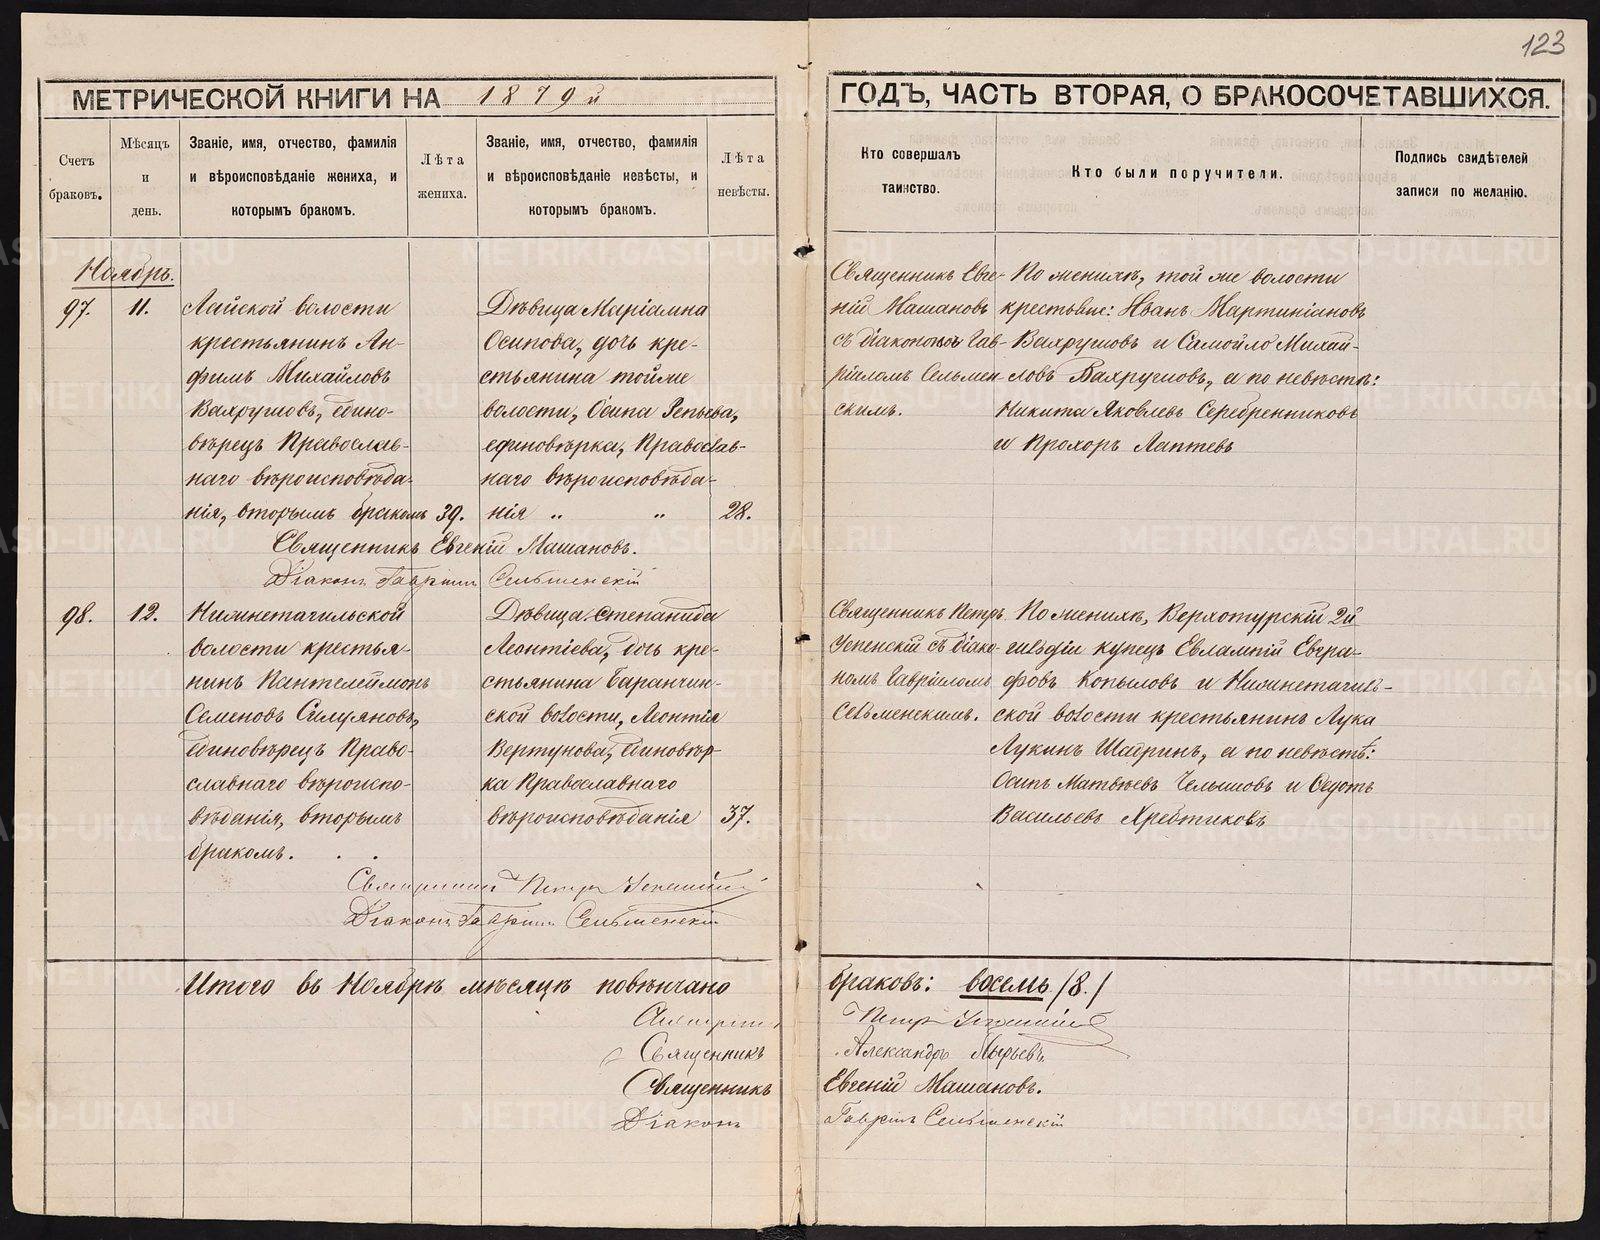 123
МЕТРИЧЕСКОЙ КНИГИ НА 1879й
ГОДЪ, ЧАСТЬ ВТОРАЯ, О БРАКОСОЧЕТАВШИХСЯ.
Счетъ
браковъ.
Мѣсяцъ
и
день.
Званіе, имя, отчество, фамилія
и вѣроисповѣданіе жениха, и
которымъ бракомъ.
Лѣта
жениха.
Званіе, имя, отчество, фамилія
и вѣроисповѣданіе невѣсты, и
которымъ бракомъ.
Лѣта
невѣсты.
Кто совершалъ
таинство.
Кто были поручители.
Подпись свидѣтелей
записи по желанію.
Ноябрь.
97.
11.
Лайской волости
крестьянинъ Ан-
фимъ Михайловъ
Вахрушовъ, едино-
вѣрецъ Православ-
наго вѣроисповѣда-
нія, вторымъ бракомъ
39.
Дѣвица Маріамна
Осипова, дочь кре-
стьянина тойже
волости, Осипа Репьева,
единовѣрка, Православ-
наго вѣроисповѣда-
нія „ „
28.
Священникъ Евге-
ній Машановъ
съ діакономъ Гав-
ріиломъ Сельмен-
скимъ.
По женихѣ, той же волости
крестьяне: Иванъ Мартиніановъ
Вахрушовъ и Самойло Михай-
ловъ Вахрушовъ, а по невѣстѣ:
Никита Яковлевъ Серебренниковъ
и Прохоръ Лаптевъ
Священникъ Евгеній Машановъ.
Діаконъ Гавріилъ Сельменскій
98.
12.
Нижнетагильской
волости крестья-
нинъ Пантелеймонъ
Семеновъ Силуяновъ,
единовѣрецъ Право-
славнаго вѣроиспо-
вѣданія, вторымъ
бракомъ. . .
Дѣвица Степанида
Леонтіева, дочь кре-
стьянина Баранчин-
ской волости, Леонтія
Вертунова, единовѣр-
ка Православнаго
вѣроисповѣданія
37.
Священникъ Петръ
Успенскій съ діако-
номъ Гавріиломъ
Сельменскимъ.
По женихѣ, Верхотурскій 2й
гильдіи купецъ Евлампій Евгра-
фовъ Копыловъ и Нижнетагиль-
ской волости крестьянинъ Лука
Лукинъ Шадринъ, а по невѣстѣ:
Осипъ Матвѣевъ Челышовъ и Ѳедотъ
Васильевъ Хребтиковъ
Священникъ Петръ Успенскій
Діаконъ Гавріилъ Сельменскій
Итого въ Ноябрѣ мѣсяцѣ повѣнчано
браковъ: восемь /8./
Петръ Успенскій
Священникъ Александръ Пырьевъ
Священникъ Евгеній Машановъ.
Діаконъ Гавріилъ Сельменскій